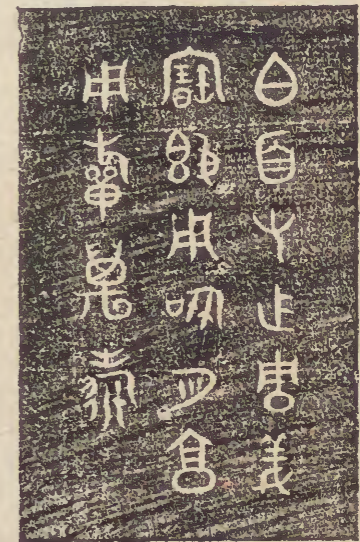 白百父乍周姜
寶𣪘用夙夕享
用祈萬壽